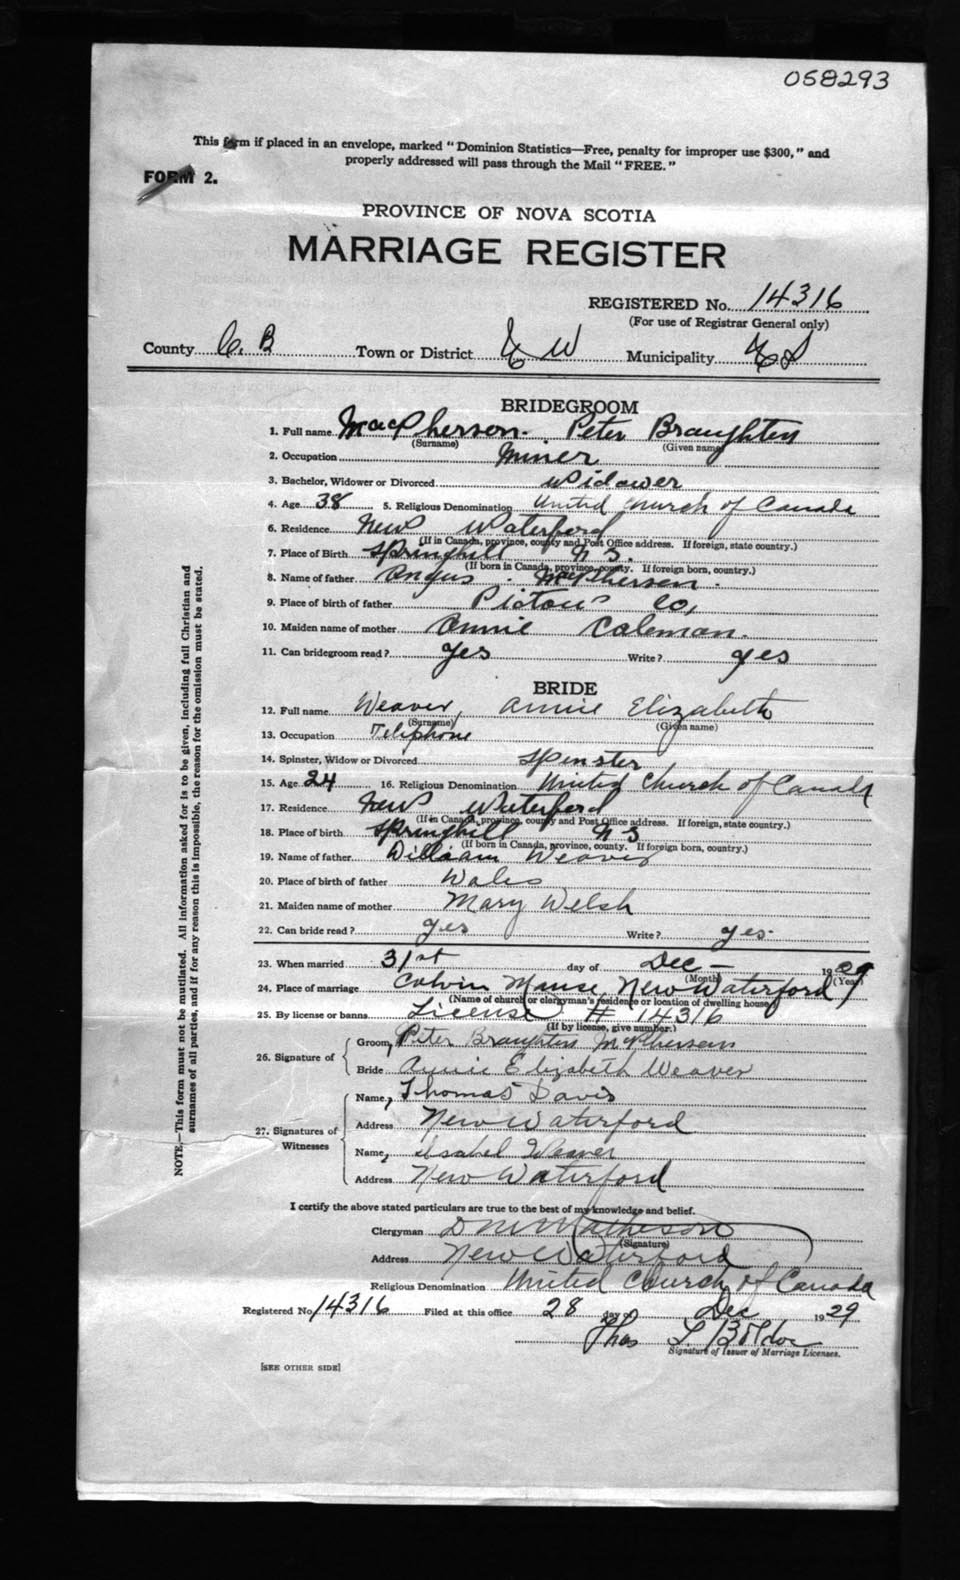 058293
This form if placed in an envelope, marked "Dominion Statistics—Free, penalty for improper use $300," and
properly addressed will pass through the Mail "FREE."
FORM 2.
PROVINCE OF NOVA SCOTIA
MARRIAGE REGISTER
REGISTERED No. 14316
(For use of Registrar General only)
County C. B Town or District W Municipality
BRIDEGROOM
1. Full name MacPherson. Peter Braughten
(Surname) (Given name)
2. Occupation Miner
3. Bachelor, Widower or Divorced widower
4. Age 38 5. Religious Denomination United Church of Canada
6. Residence New Waterford
(If in Canada, province, county and Post Office address. If foreign, state country.)
7. Place of Birth Springhill N S.
(If born in Canada, province, county. If foreign born, country.)
8. Name of father Angus. McPherson.
9. Place of birth of father Pictou Co,
10. Maiden name of mother Annie Coleman.
11. Can bridegroom read? yes Write? yes
BRIDE
12. Full name Weaver, Annie Elizabeth
(Surname) (Given name)
13. Occupation Telephone
14. Spinster, Widow or Divorced Spinster
15. Age 24 16. Religious Denomination United Church of Canada
17. Residence New Waterford
(If in Canada, province, county and Post Office address. If foreign, state country.)
18. Place of birth Springhill N S
(If born in Canada, province, county. If foreign born, country.)
19. Name of father William Weaver
20. Place of birth of father Wales
21. Maiden name of mother Mary Welsh
22. Can bride read? yes Write? yes
23. When married 31st day of Dec – 1929
(Month) (Year)
24. Place of marriage Calvin Manse, New Waterford
(Name of church or clergyman's residence or location of dwelling house)
25. By license or banns License # 14316
(If by license, give number.)
26. Signature of Groom, Peter Braughten McPherson
Bride Annie Elizabeth Weaver
27. Signatures of Witnesses Name, Thomas Davis
Address New Waterford
Name, Isabel Weaver
Address New Waterford
I certify the above stated particulars are true to the best of my knowledge and belief.
Clergyman D M Matheson
(Signature)
Address New Waterford
Religious Denomination United Church of Canada
Registered No. 14316 Filed at this office 28 day of Dec 1929
Thos L.
Signature of Issuer of Marriage Licenses.
[SEE OTHER SIDE]
NOTE.—This form must not be mutilated. All information asked for is to be given, including full Christian and
surnames of all parties, and if for any reason this is impossible, the reason for the omission must be stated.